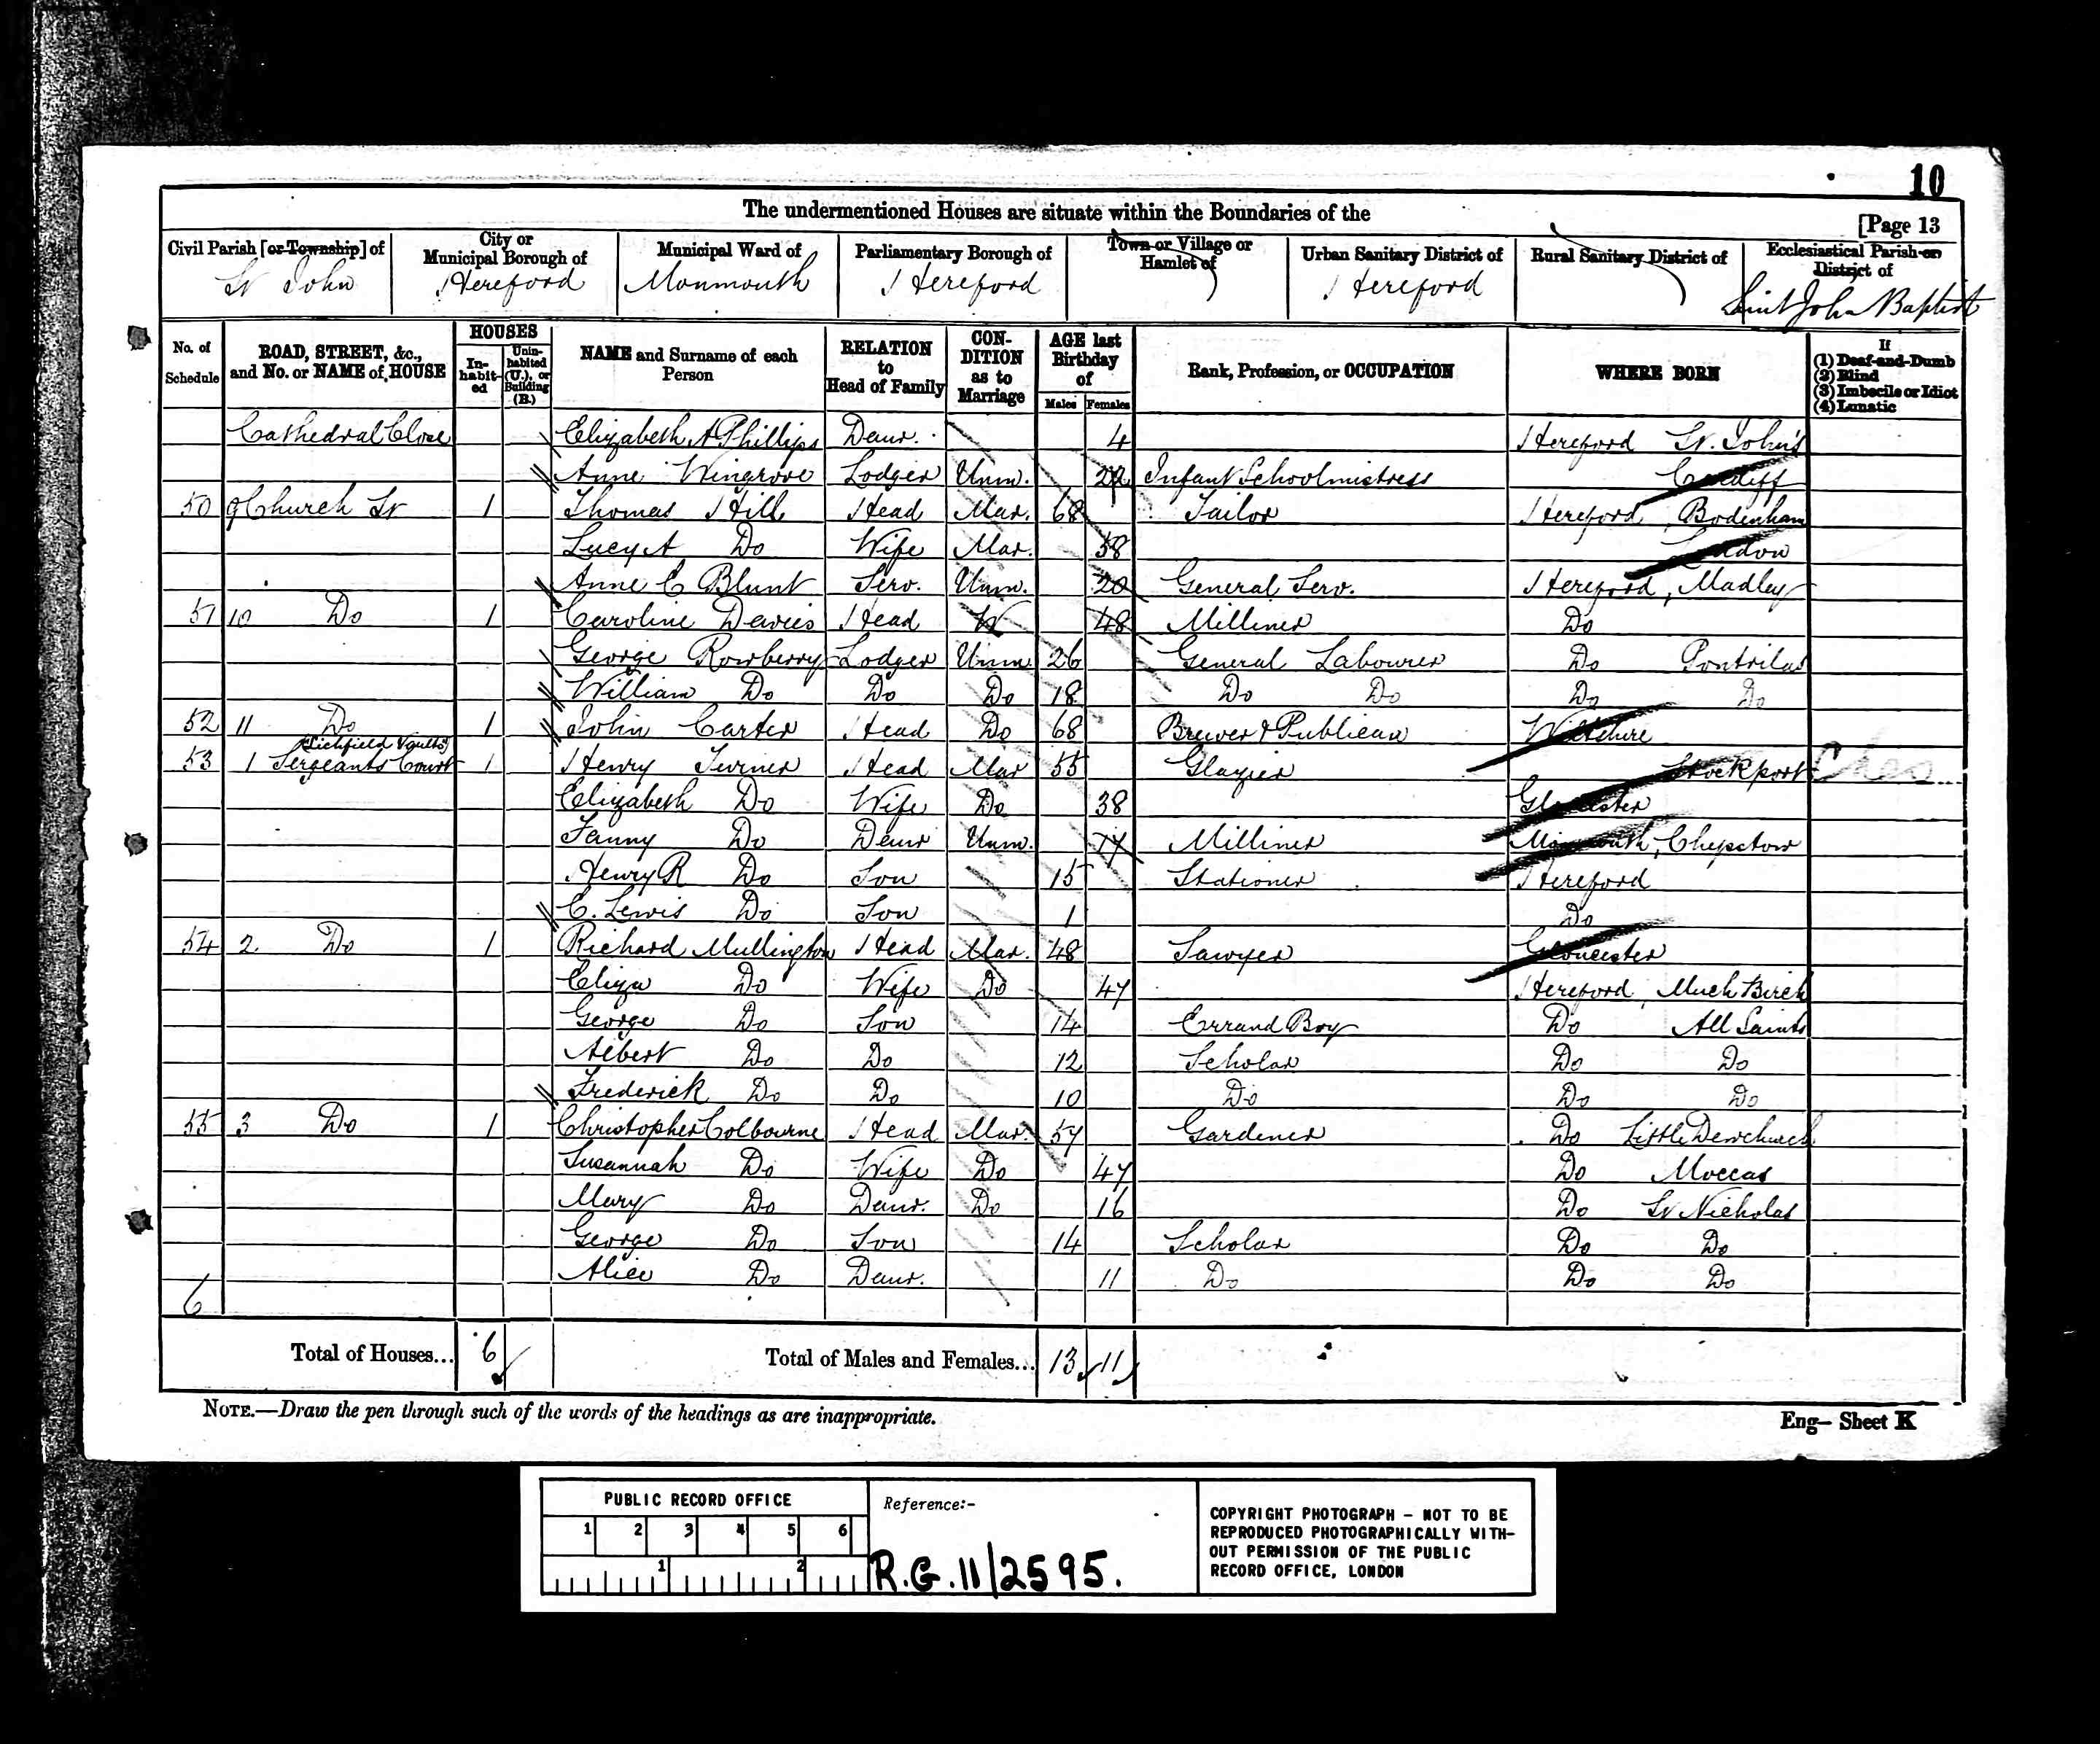 10
The undermentioned Houses are situate within the Boundaries of the
[Page 13
Civil Parish [or Township] of
St John
City or Municipal Borough of
Hereford
Municipal Ward of
Monmouth
Parliamentary Borough of
Hereford
Town or Village or Hamlet of
Urban Sanitary District of
Hereford
Rural Sanitary District of
Ecclesiastical Parish or District of
Saint John Baptist
No. of Schedule
ROAD, STREET, &c., and No. or NAME of HOUSE
HOUSES
In-habit-ed
Unin-habited (U.), or Building (B.)
NAME and Surname of each Person
RELATION to Head of Family
CON-DITION as to Marriage
AGE last Birthday of
Males Females
Rank, Profession, or OCCUPATION
WHERE BORN
If
(1) Deaf-and-Dumb
(2) Blind
(3) Imbecile or Idiot
(4) Lunatic
Cathedral Close Elizabeth A Phillips Daur. 4 Hereford St. John's
Anne Wingrove Lodger Unm. 22 Infant Schoolmistress Cardiff
50 9 Church St 1 Thomas Hill Head Mar. 68 Tailor Hereford, Bodenham
Lucy A Do Wife Mar. 58 London
Anne C Blunt Serv. Unm. 20 General Serv. Hereford, Madley
51 10 Do 1 Caroline Davies Head W 48 Milliner Do
George Rowberry Lodger Unm 26 General Labourer Do Pontrilas
William Do Do Do 18 Do Do Do Do
52 11 Do 1 John Carter Head Do 68 Brewer & Publican Wiltshire
(Lichfield Vaults)
53 1 Sergeants Court 1 Henry Turner Head Mar 55 Glazier Stockport Ches
Elizabeth Do Wife Do 38 Gloucester
Fanny Do Daur Unm. 17 Milliner Monmouth, Chepstow
Henry R Do Son 15 Stationer Hereford
C. Lewis Do Son 1 Do
54 2 Do 1 Richard Mullington Head Mar. 48 Sawyer Gloucester
Eliza Do Wife Do 47 Hereford, Much Birch
George Do Son 14 Errand Boy Do All Saints
Albert Do Do 12 Scholar Do Do
Frederick Do Do 10 Do Do Do
55 3 Do 1 Christopher Colbourne Head Mar. 57 Gardener Do Little Dewchurch
Susannah Do Wife Do 47 Do Moccas
Mary Do Daur. Do 16 Do St Nicholas
George Do Son 14 Scholar Do Do
Alice Do Daur. 11 Do Do Do
6
Total of Houses... 6 Total of Males and Females... 13 11
NOTE.—Draw the pen through such of the words of the headings as are inappropriate.
Eng— Sheet K
PUBLIC RECORD OFFICE
1 2 3 4 5 6
1 2
Reference:-
R.G. 11/2595.
COPYRIGHT PHOTOGRAPH – NOT TO BE
REPRODUCED PHOTOGRAPHICALLY WITH-
OUT PERMISSION OF THE PUBLIC
RECORD OFFICE, LONDON